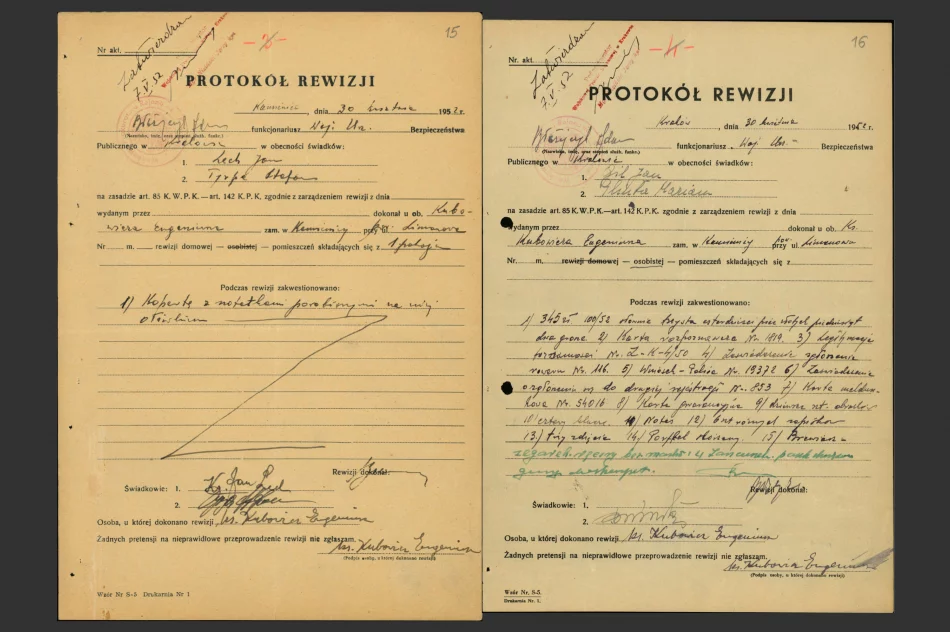 15
Nr akt.
Zatwierdzam
7.V.52
-2-
PROTOKÓŁ REWIZJI
Kamienica, dnia 30 kwietnia 1952 r.
Błażejczyk Adam funkcjonariusz Woj. U.B. Bezpieczeństwa
(Nazwisko, imię, oraz stopień służb. funkc.)
Publicznego w Krakowie w obecności świadków:
1. Lech Jan
2. Stefan
na zasadzie art. 85 K.W.P.K. — art. 142 K.P.K. zgodnie z zarządzeniem rewizji z dnia
wydanym przez dokonał u ob. Kubo-
wicza Eugeniusza zam. w Kamienicy przy ul. pow. Limanowa
Nr m. rewizji domowej — osobistej — pomieszczeń składających się z 1 pokoju
Podczas rewizji zakwestionowano:
1) Kopertę z notatkami porobionymi na niej
ołówkiem
Rewizji dokonał:
Świadkowie: 1. Ks. Jan Lech
2.
Osoba, u której dokonano rewizji ks. Kubowicz Eugeniusz
Żadnych pretensji na nieprawidłowe przeprowadzenie rewizji nie zgłaszam.
ks. Kubowicz Eugeniusz
(Podpis osoby, u której dokonano rewizji)
Wzór Nr S-5 Drukarnia Nr 1
16
Nr akt.
Zatwierdzam
7.V.52
-4-
PROTOKÓŁ REWIZJI
Kraków, dnia 30 kwietnia 1952 r.
Błażejczyk Adam funkcjonariusz Woj. Urz. Bezpieczeństwa
(Nazwisko, imię, oraz stopień służb. funkc.)
Publicznego w Krakowie w obecności świadków:
1. Jan
2. Marian
na zasadzie art. 85 K.W.P.K.—art. 142 K.P.K. zgodnie z zarządzeniem rewizji z dnia
wydanym przez dokonał u ob. Ks.
Kubowicza Eugeniusza zam. w Kamienicy przy ul. pow. Limanowa
Nr m. rewizji domowej — osobistej — pomieszczeń składających się z
Podczas rewizji zakwestionowano:
1) 345 zł 100/52 słownie trzysta czterdzieści pięć złotych pięćdziesiąt
dwa grosze 2) Karta rozpoznawcza Nr. 1919. 3) Legitymacja
tożsamości No. Z-K-4/50 4) Zaświadczenie zgłoszenia
roweru Nr. 116. 5) Wniosek-Polisa Nr. 19372 6) Zaświadczenie
o zgłoszeniu się do drugiej rejestracji Nr. 853 7) Karta meldun-
kowa Nr. 54016 8) Karta 9)
10) cztery klucze. 11) Notes 12) 6 szt. różnych zapisków
13) trzy zdjęcia 14) Portfel skórzany. 15) Brewiarz
zegarek ręczny
Rewizji dokonał:
Świadkowie: 1.
2.
Osoba, u której dokonano rewizji ks. Kubowicz Eugeniusz
Żadnych pretensji na nieprawidłowe przeprowadzenie rewizji nie zgłaszam.
ks. Kubowicz Eugeniusz
(Podpis osoby, u której dokonano rewizji)
Wzór Nr. S-5.
Drukarnia Nr. 1.